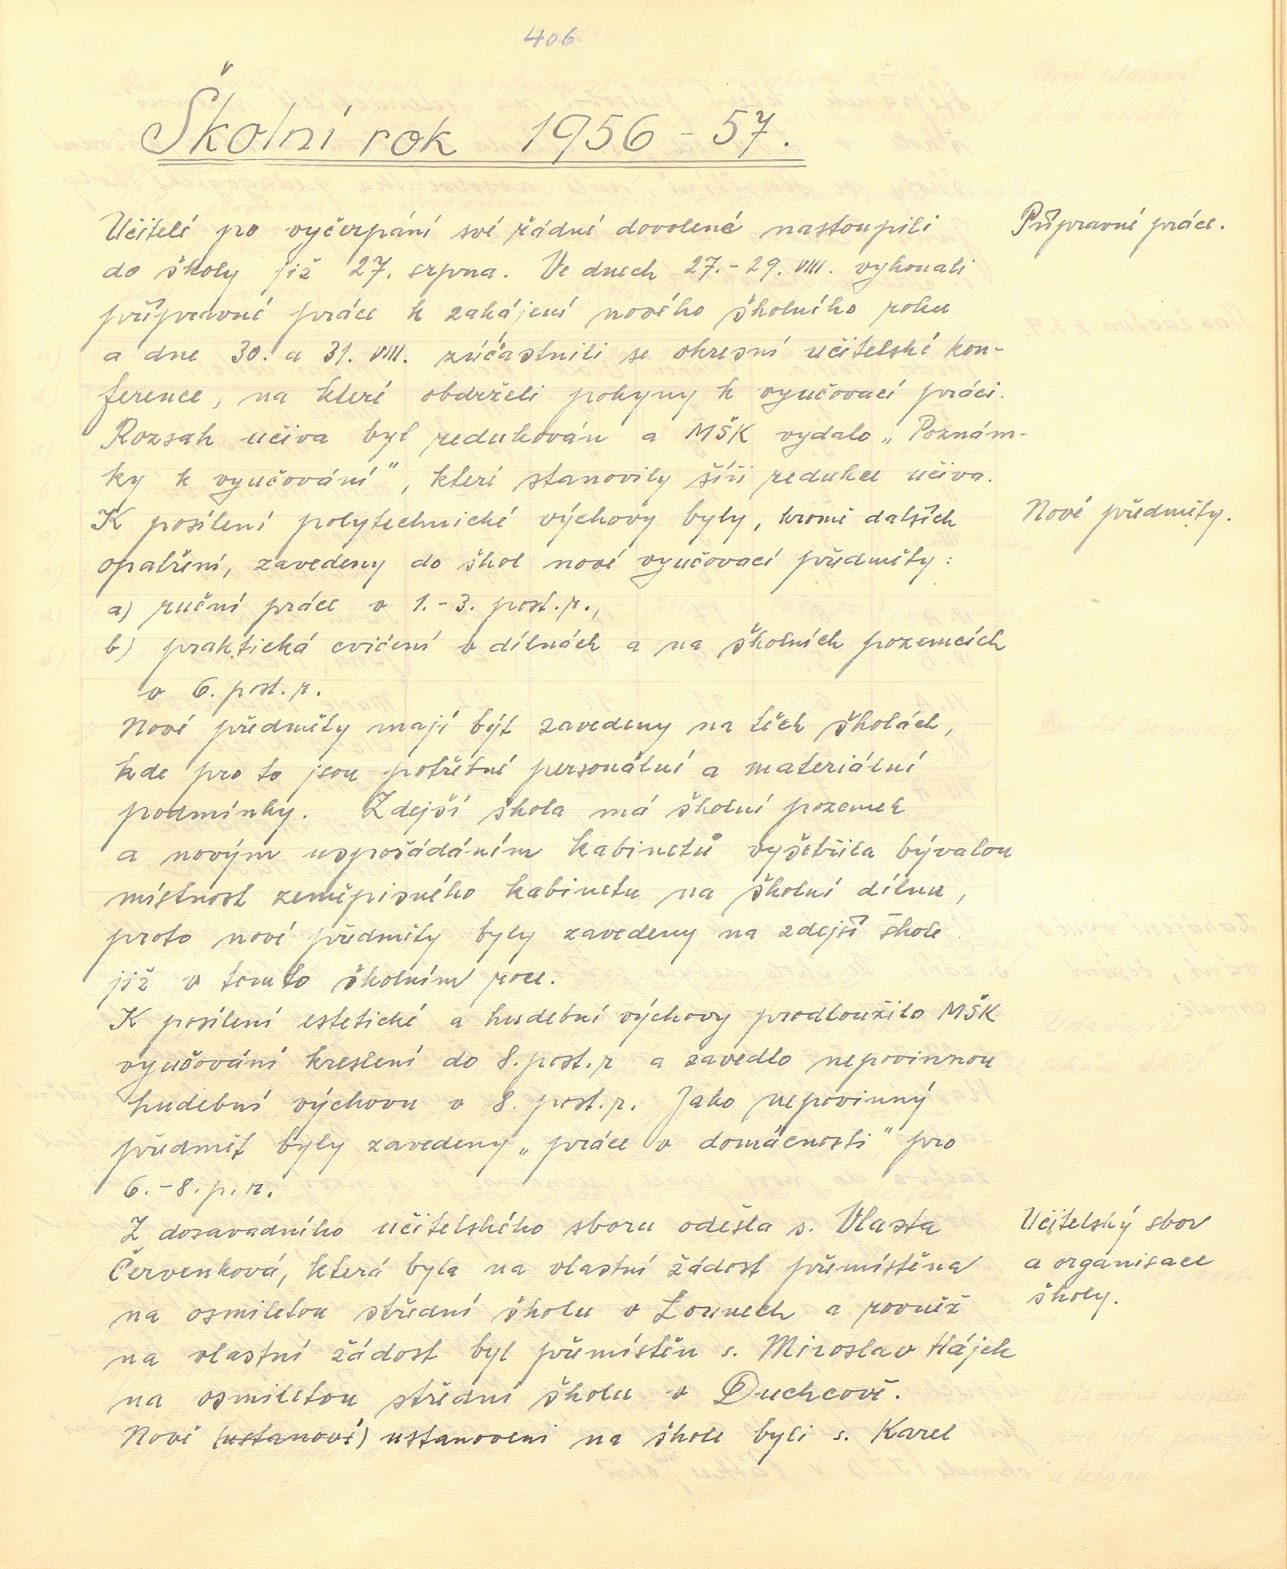 406
Školní rok 1956-57.
Učitelé po vyčerpání své řádné dovolené nastoupili
Přípravné práce.
do školy již 27. srpna. Ve dnech 27.-29. VIII. vykonali
přípravné práce k zahájení nového školního roku
a dne 30. a 31. VIII. zúčastnili se okresní učitelské kon-
ference, na které obdrželi pokyny k vyučovací práci.
Rozsah učiva byl redukován a MŠK vydalo „Poznám-
ky k vyučování", které stanovily šíři redukce učiva.
K posílení polytechnické výchovy byly, kromě dalších
Nové předměty.
opatření, zavedeny do škol nové vyučovací předměty:
a) ruční práce v 1.-3. post.r.,
b) praktická cvičení v dílnách a na školních pozemcích
v 6. post.r.
Nové předměty mají být zavedeny na těch školách,
kde pro to jsou potřebné personální a materiální
podmínky. Zdejší škola má školní pozemek
a novým uspořádáním kabinetů vyšetřila bývalou
místnost zeměpisného kabinetu na školní dílnu,
proto nové předměty byly zavedeny na zdejší škole
již v tomto školním roce.
K posílení estetické a hudební výchovy prodloužilo MŠK
vyučování kreslení do 8. post.r a zavedlo nepovinnou
hudební výchovu v 8. post.r. Jako nepovinný
předmět byly zavedeny „práce v domácnosti" pro
6.-8. p.r.
Z dosavadního učitelského sboru odešla s. Vlasta
Učitelský sbor
Červenková, která byla na vlastní žádost přemístěna
a organisace
na osmiletou střední školu v Lounech a rovněž
školy.
na vlastní žádost byl přemístěn s. Miroslav Hájek
na osmiletou střední školu v Duchcově.
Nově (ustanoví) ustanoveni na škole byli s. Karel